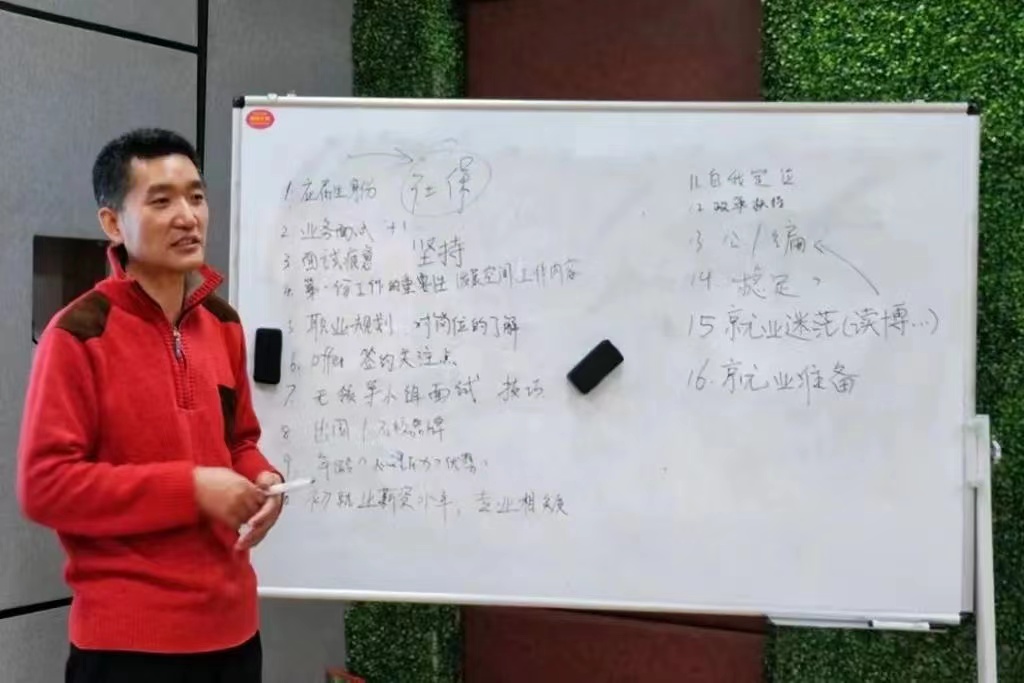 1. 应届生身份 社保
2. 业务面试 +1
坚持
3. 面试
4. 第一份工作的重要性 发展空间 工作内容
5 职业规划 对岗位的了解
6. offer 签约关注点
7 无领导小组面试 技巧
8 出国 /
9. 年龄 优势
就业薪资水平, 专业相关度
11.自我定位
12
13 公/编
14. 稳定
15 就业迷茫(读博...)
16. 就业准备